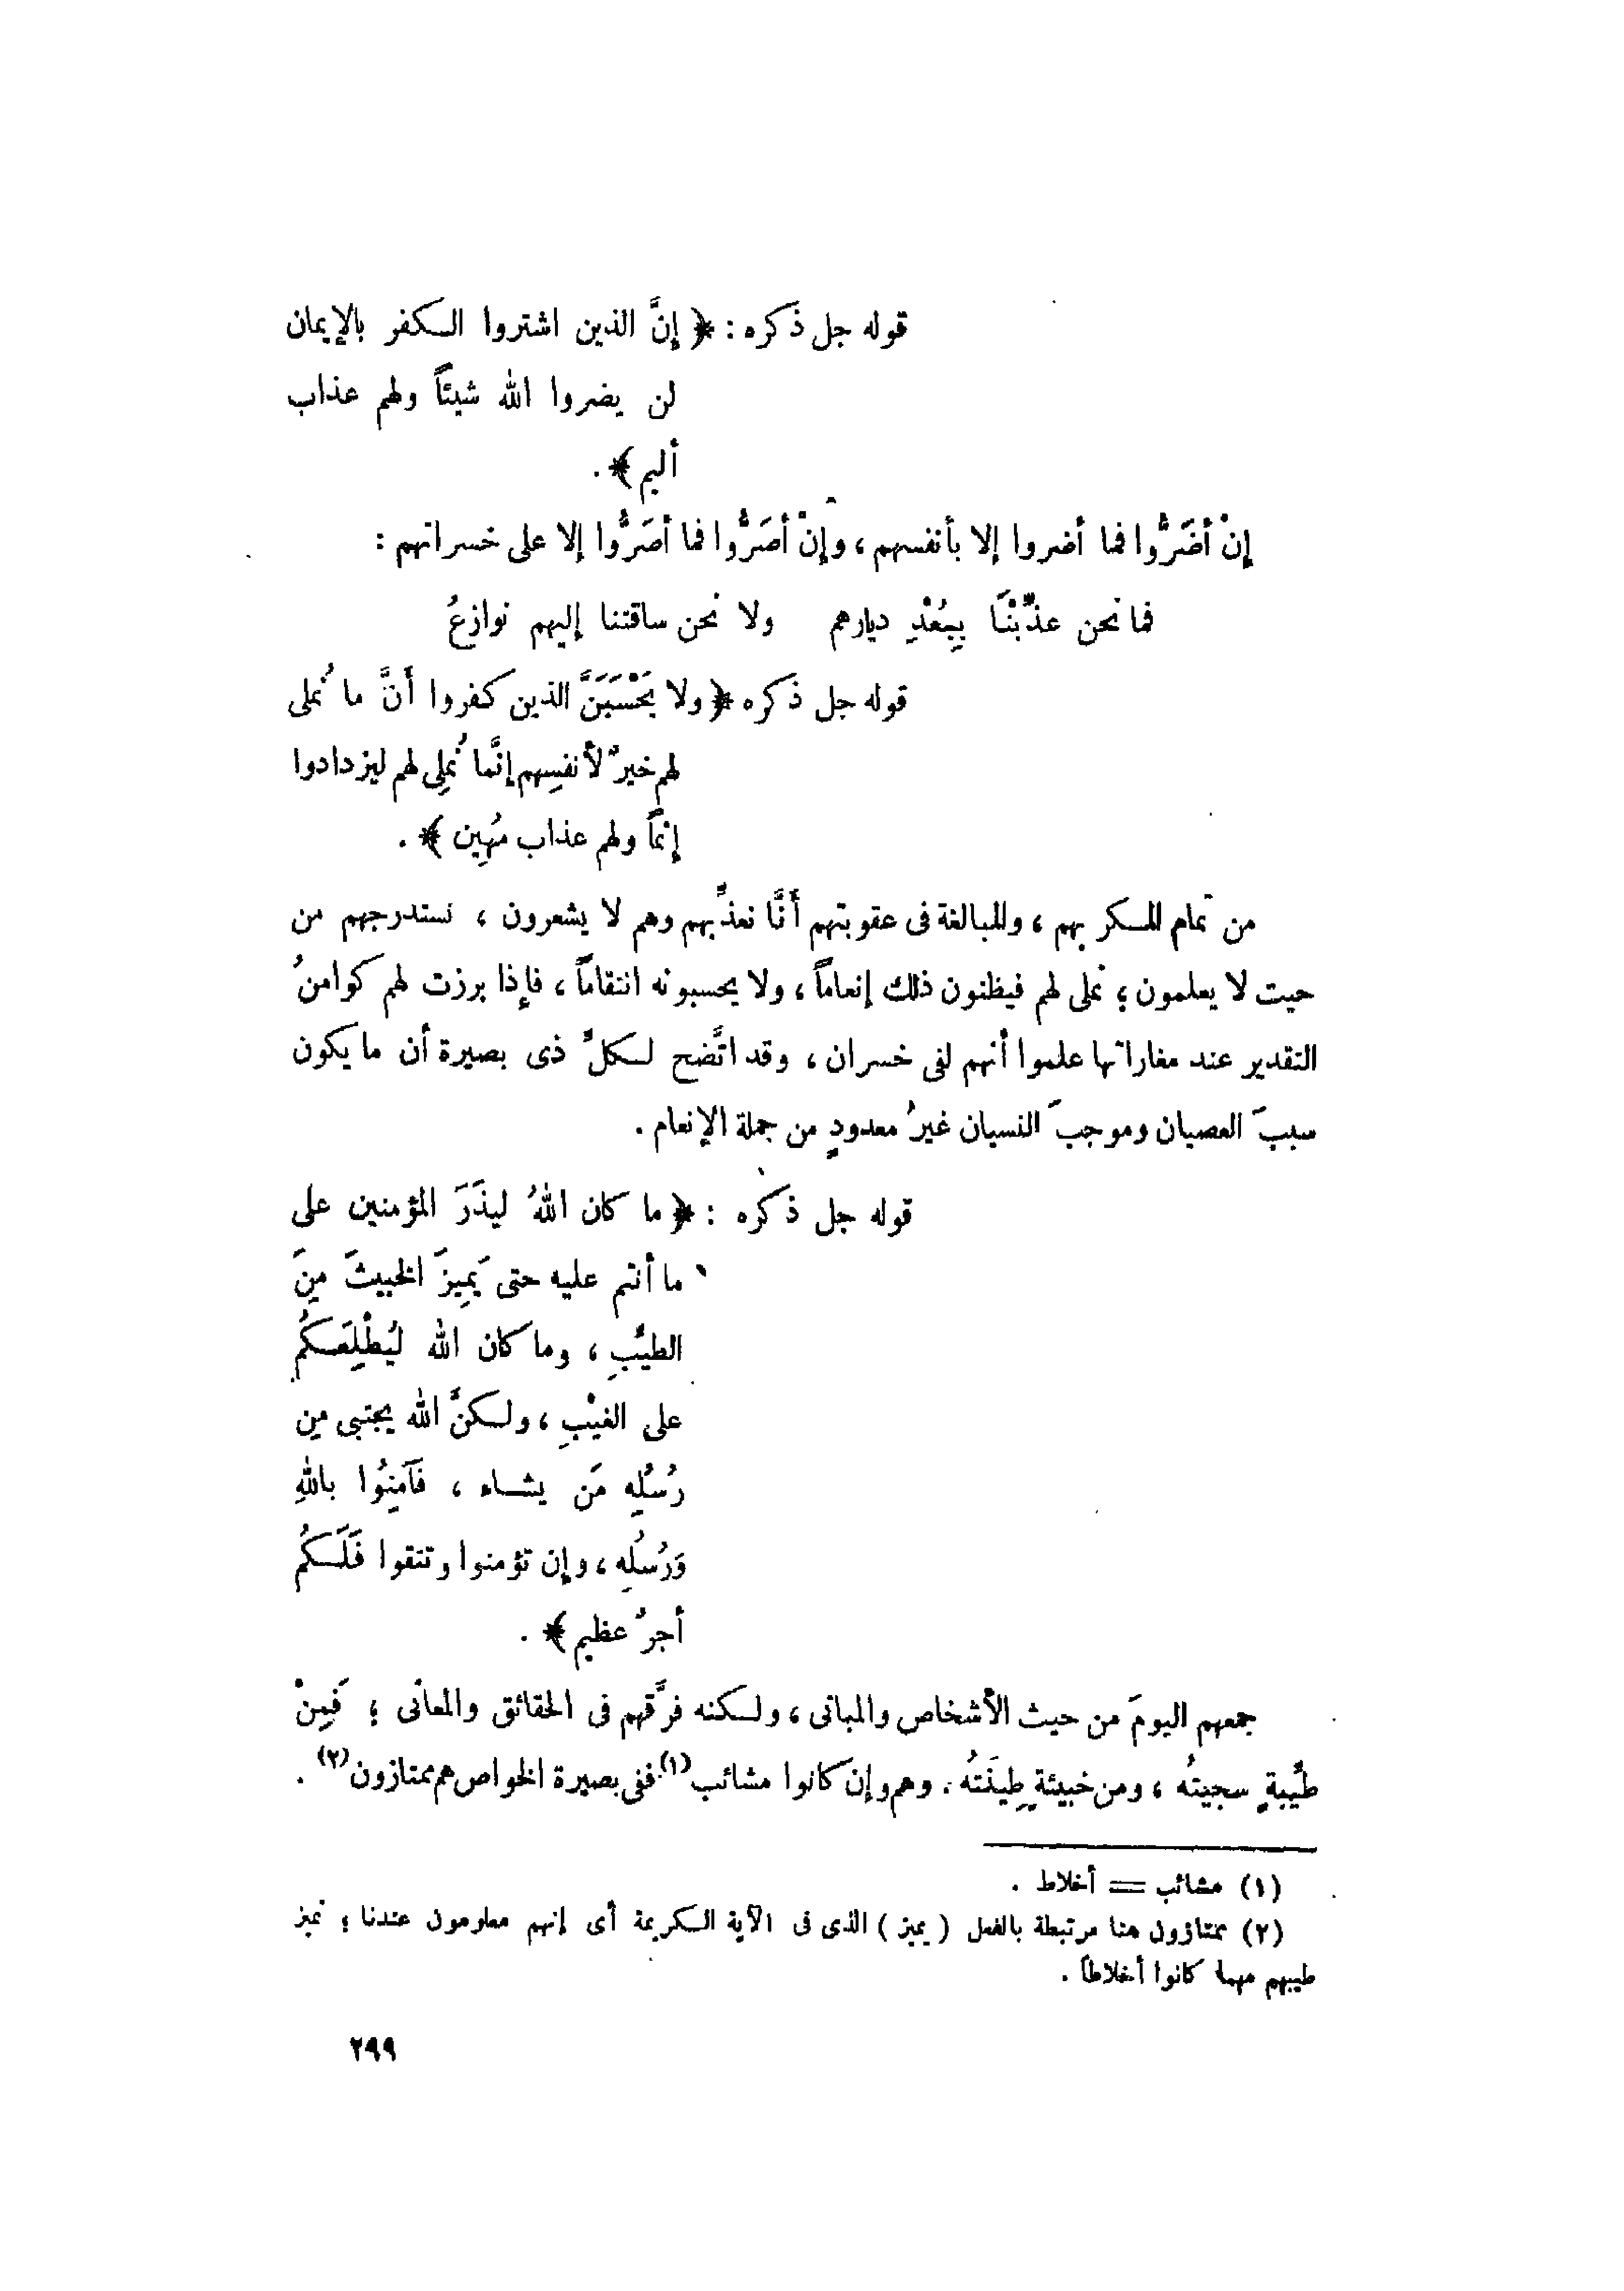 قوله جل ذكره : ﴿ إنَّ الذين اشتروا الكفر بالإيمان
لن يضروا الله شيئاً ولهم عذاب
أليم ﴾ .
إنْ أضَرُّوا فما أضروا إلا بأنفسهم ، وإنْ أصَرُّوا فما أصَرُّوا إلا على خسرانهم :
فما نحن عذَّبْنَا بِبُعْدِ ديارهم ولا نحن ساقتنا إليهم نوازعُ
قوله جل ذكره ﴿ ولا يَحْسَبَنَّ الذين كفروا أَنَّ ما نُملى
لهم خيرٌ لأنفسِهم إنَّما نُملِى لهم ليزدادوا
إثماً ولهم عذاب مُهِين ﴾ .
من تمام المكر بهم ، والمبالغة فى عقوبتهم أَنَّا نعذِّبهم وهم لا يشعرون ، نستدرجهم من
حيث لا يعلمون ؛ نملى لهم فيظنون ذلك إنعاماً ، ولا يحسبونه انتقاماً ، فإذا برزت لهم كوامنُ
التقدير عند مغاراتها علموا أنهم لفى خسران ، وقد اتَّضح لكلِّ ذى بصيرة أن ما يكون
سببَ العصيان وموجبَ النسيان غيرُ معدودٍ من جملة الإنعام .
قوله جل ذكره : ﴿ ما كان اللهُ ليذَرَ المؤمنين على
ما أنتم عليه حتى يَمِيزَ الخبيثَ مِنَ
الطيِّبِ ، وما كان الله ليُطْلِعَكُم
على الغيْبِ ، ولكنَّ الله يجتبى مِن
رُسُلِه مَن يشاء ، فَآمِنُوا باللهِ
وَرُسُلِه ، وإن تؤمنوا وتتقوا فَلَكُم
أجرٌ عظيم ﴾ .
جمعهم اليومَ من حيث الأشخاص والمبانى ، ولكنه فرَّقهم فى الحقائق والمعانى ؛ فَمِنْ
طيِّبةٍ سجيتُه ، ومن خبيثةٍ طِينَتُه . وهم وإن كانوا مشائب (١) ففى بصيرة الخواص هم ممتازون (٢) .
(١) مشائب = أخلاط .
(٢) ممتازون هنا مرتبطة بالفعل ( يميز ) الذى فى الآية الكريمة أى إنهم معلومون عندنا ؛ نميز
طيبهم مهما كانوا أخلاطاً .
٢٩٩